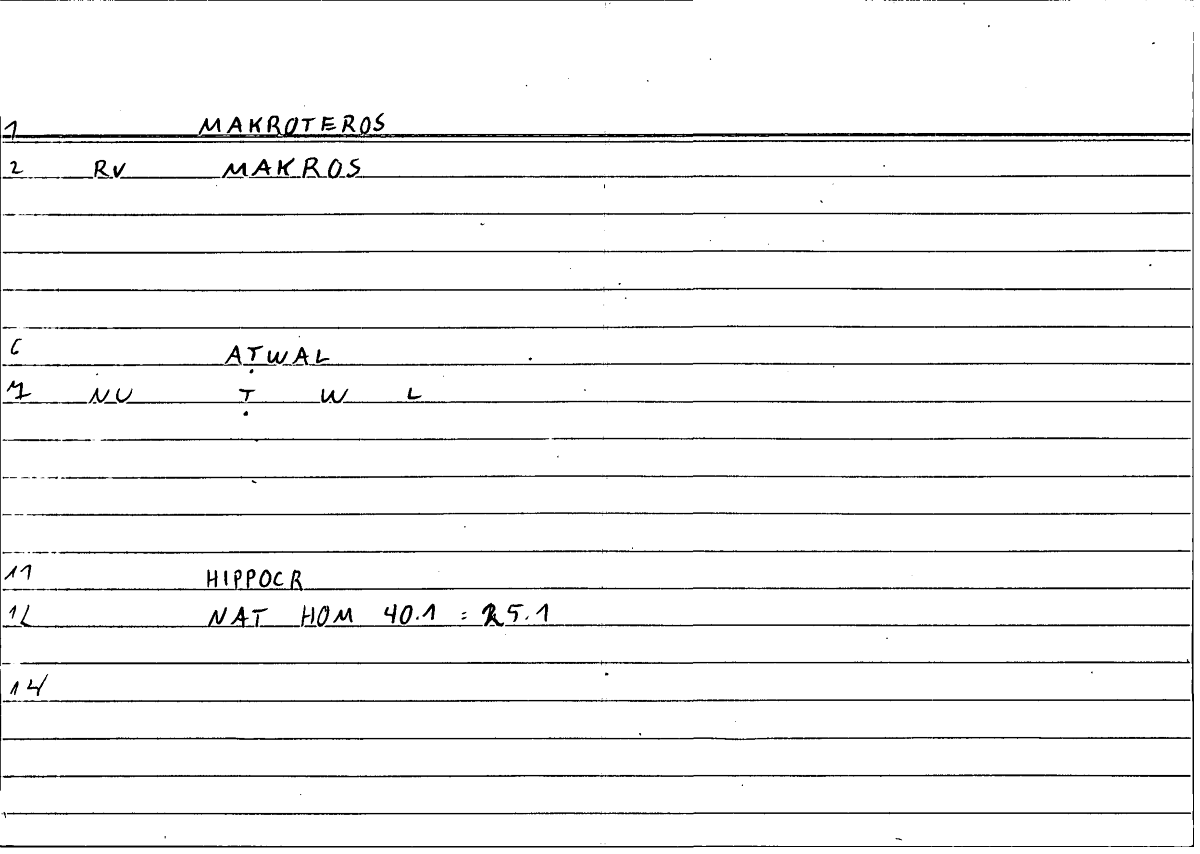 1 MAKROTEROS
2 RV MAKROS
6 AṬWAL
7 NU Ṭ W L
11 HIPPOCR
12 NAT HOM 40.1 = 25.1
14